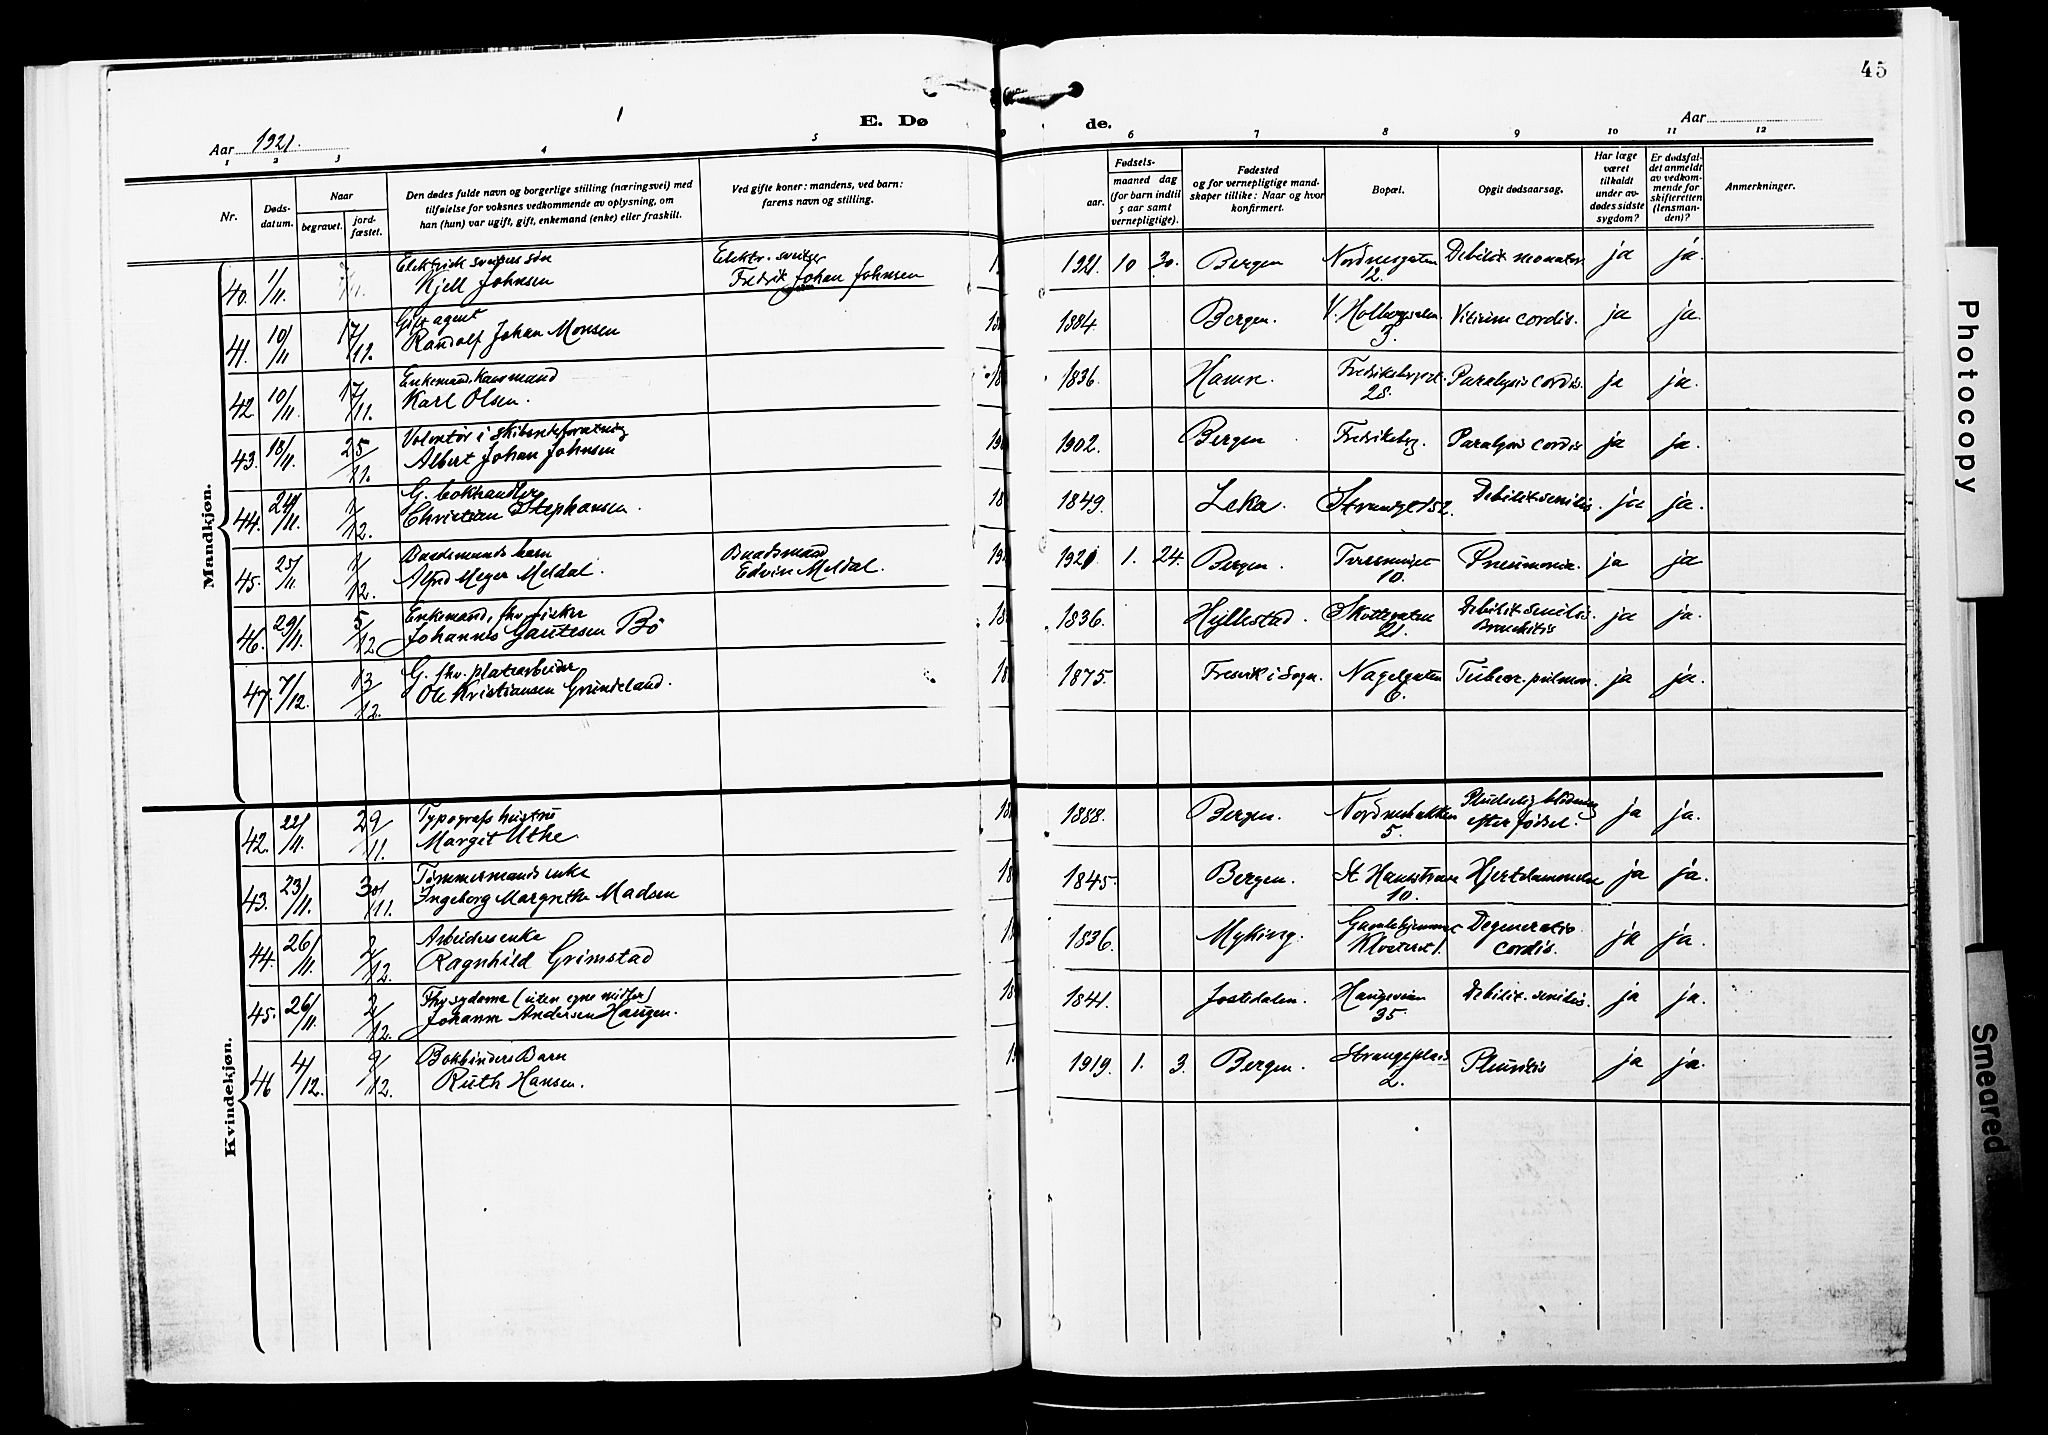 45
E. Døde.
Aar 1921.
Aar
1 2 3 4 5 6 7 8 9 10 11 12
Nr.
Døds-
datum.
Naar
begravet.
jord-
fæstet.
Den dødes fulde navn og borgerlige stilling (næringsvei) med
tilføielse for voksnes vedkommende av oplysning, om
han (hun) var ugift, gift, enkemand (enke) eller fraskilt.
Ved gifte koner: mandens, ved barn:
farens navn og stilling.
Fødsels-
aar.
maaned dag
(for barn indtil
5 aar samt
vernepligtige).
Fødested
og for vernepligtige mand-
skaper tillike: Naar og hvor
konfirmert.
Bopæl.
Opgit dødsaarsag.
Har læge
været
tilkaldt
under av-
dødes sidste
sygdom?
Er dødsfal-
det anmeldt
av vedkom-
mende for
skifteretten
(lensman-
den)?
Anmerkninger.
Mandkjøn.
40. 1/11. 7/11. Elektrisk sveisers søn Elektr. sveiser 1921. 10 30. Bergen Nordnesgaten Debilit. neonator. ja ja.
Kjell Johnsen Fredrik Johan Johnsen 12.
41. 10/11 17/11. Gift agent 1884 Bergen. V. Holbergsalm. Vitium cordis. ja ja.
Randolf Johan Monsen 3.
42 10/11. 17/11. Enkemand, 1836. Fredriksbergsgt. Paralysis cordis. ja ja.
Karl Olsen. 28.
43. 18/11. 25/11. Volontør i skibsutsforretning 1902. Bergen Fredriksberg. Paralysis cordis ja ja.
Albert Johan Johnsen
44. 24/11. 1/12. G. bokhandler 1849. Leka Strandgt 152. Debilit. senilis. ja ja.
Christian Stephansen.
45. 25/11 1/12. Baadsmands barn Baadsmand 1921 1. 24. Bergen. Pneumonia. ja ja
Alfred Meyer Meldal. Edvin Meldal. 10.
46. 29/11. 5/12 Enkemand, fhv. fisker 1836. Hyllestad. Skottegaten Debilit. senilis. ja ja.
Johannes Gautesen Bö 21. Bronchitis
47. 7/12. 13/12. G. fhv. platearbeider 1875. Fresvik i Sogn. Nagelgaten Tuberc. pulmon. ja ja.
Ole Kristiansen Grindeland. 6.
Kvindekjøn.
42. 22/11. 29/11. Typografs hustru 1888. Bergen. Nordnesbakken Pludselig blødning ja ja.
Margit Uthe 5. efter fødsel.
43. 23/11. 30/11. Tømmermands enke 1845. Bergen. St. Hansstræde Hjertelammelse ja ja.
Ingeborg Margrethe Madsen 10.
44. 26/11. 2/12. Arbeiders enke 1836. Myking. Gamlehjemmet Degeneratio ja ja.
Ragnhild Grimstad Klosteret 1. cordis.
45. 26/11. 2/12. Fhv. sydame (uten egne midler) 1841. Jostedalen. Haugeveien Debilit. senilis. ja ja.
Johanne Andersen Haugen. 35
46 4/12. 9/12. Bokbinders Barn 1919. 1. 3. Bergen. Strangeplads Pleuritis ja ja.
Ruth Hansen. 2.
Photocopy
Smeared